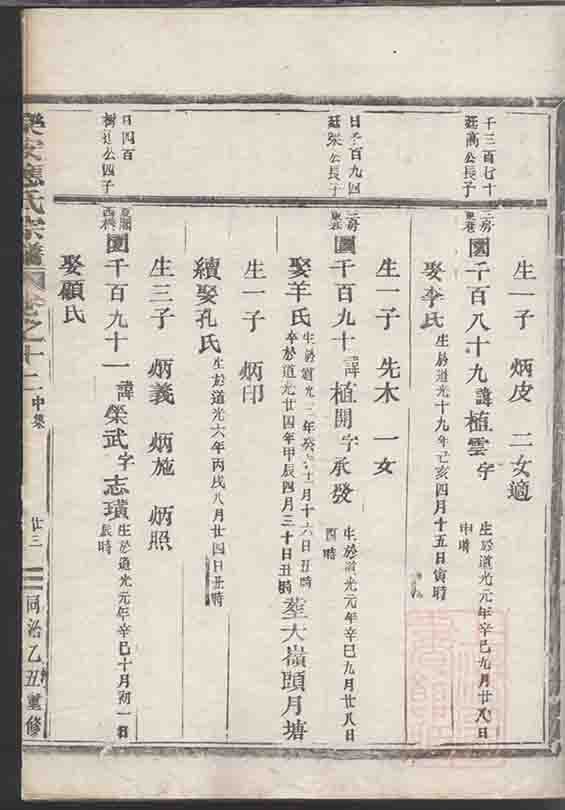 千三百七十
廷高公長子
生一子 炳皮 二女適
三房
東巷
國千百八十九諱植雲字
生於道光元年辛巳九月廿八日
申時
娶李氏
生於道光十九年己亥四月十五日寅時
生一子 先木 一女
日千百九四
廷聚公長子
三房
東巷
國千百九十諱植開字承發
生於道光元年辛巳九月廿八日
酉時
娶羊氏
生於道光三年癸十一月十六日丑時
卒於道光廿四年甲辰四月三十日丑時
塟大嶺頭月塘
生一子 炳印
續娶孔氏
生於道光六年丙戌八月廿四日丑時
生三子 炳義 炳施 炳照
日四百
樹廷公四子
西
國千百九十一諱榮武字志璜
生於道光元年辛巳十月初一日
辰時
娶顧氏
應氏宗譜
卷之十二
中集
廿三
同治乙丑重修